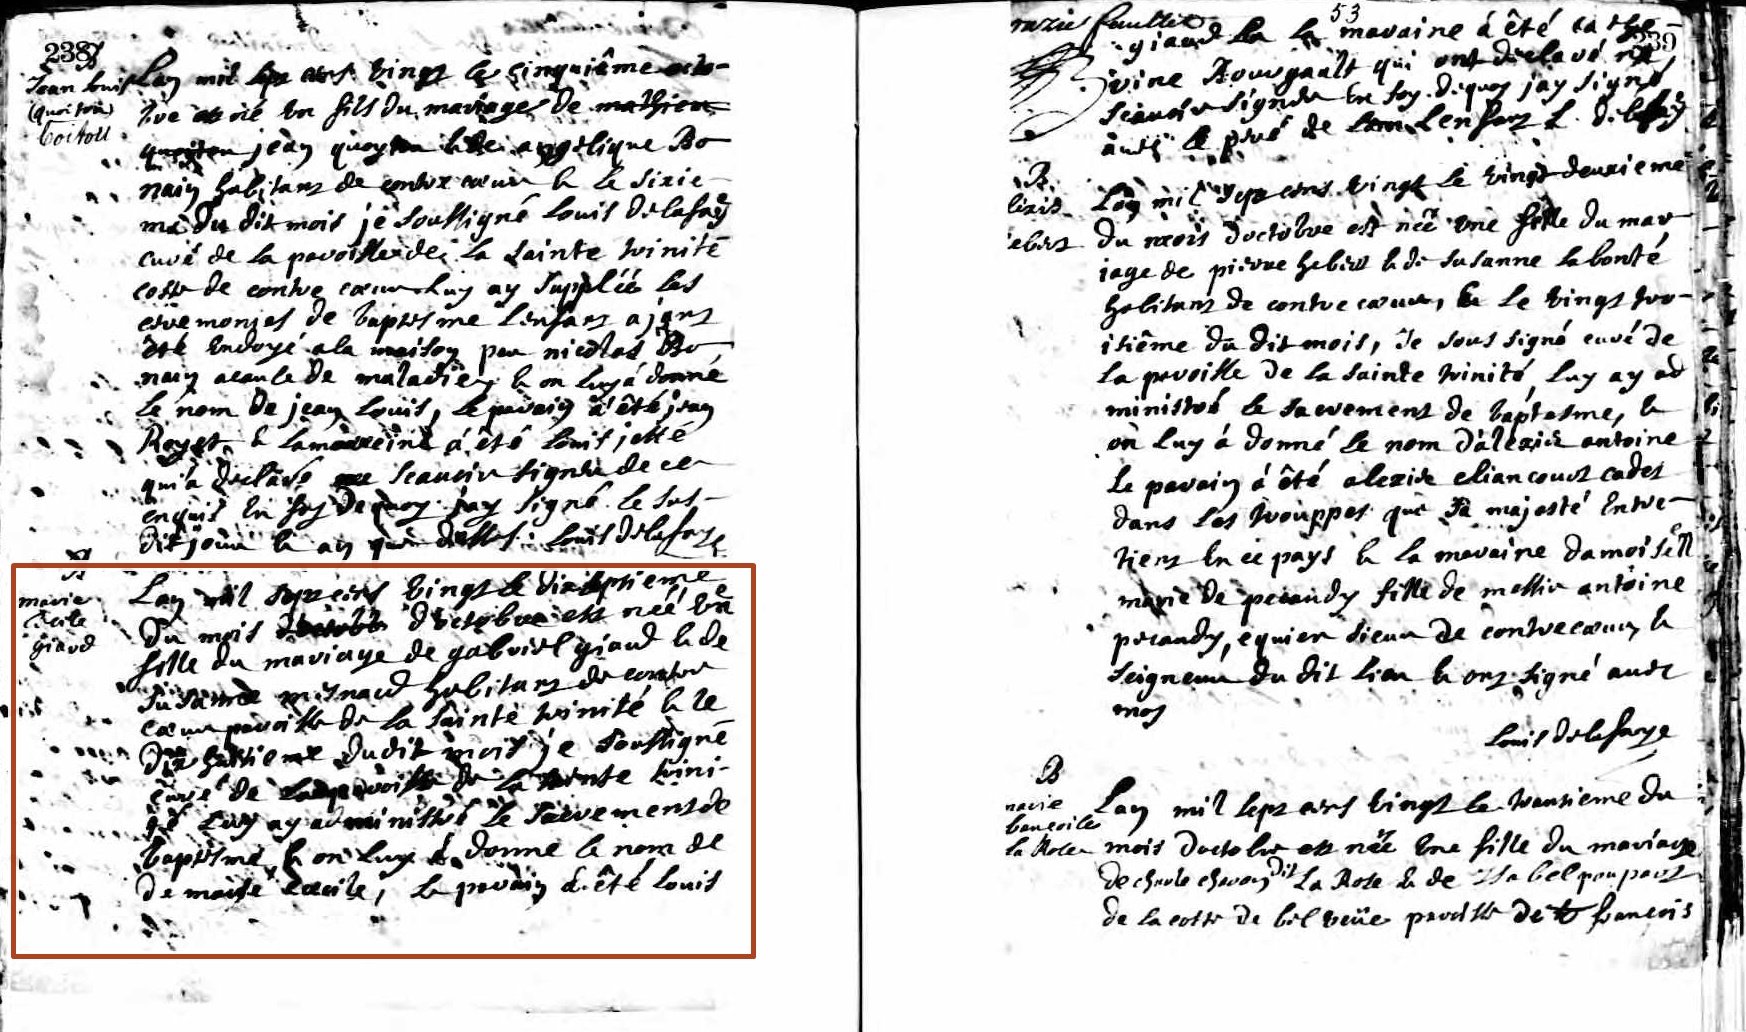 238
Jean Louis
(quoiton)
Coitou
Lan mil sept cens vingt le cinquiême octo-
bre est né un fils du mariage de mathieu
quoyton jean quoyton & de angelique Bo
nain habitans de contre cœur & le sixie-
me du dit mois je soussigné Louis delafaye
curé de la paroisse de la sainte trinité
coste de contre cœur luy ay suppléé les
ceremonies de baptesme l'enfant ajant
été ondoyé a la maison par nicolas Bo
nain acause de maladie, & on luy á donné
le nom de jean Louis, le parain á été jean
Royer & la maraine á été Louise jetté
qui á declaré ne scauoir signer de ce
enquis en foy dequoy jay signé le sus-
dit jour & an que dessus. Louis delafaye
B
marie
cecile
giard
Lan mil sept cens vingt le dixseptieme
du mois doctobre doctobre est neé une
fille du mariage de gabriel giard & de
susanne mesnard habitans de contre
cœur paroisse de la sainte trinité & le
dix huitieme du dit mois je soussigné
curé de la paroisse de la sainte trini-
té luy ay administré le sacrement de
baptesme, & on luy á donné le nom de
de marie cecile, le parain á été Louis
53
239
giard & la maraine á été cathe-
rine Rourgault qui ont declaré ne
scauoir signer en foy dequoy jay signé
auec le pere de lenfant L. delafaye
B
alexis
hebert
Lan mil sept cens vingt le vingt deuxieme
du mois doctobre est neé une fille du mar
iage de pierre hebert & de susanne labonté
habitans de contre cœur, & le vingt tro-
isiême du dit mois, Je sous signé curé de
la paroisse de la sainte trinité, luy ay ad
ministré le sacrement de baptesme, &
on luy á donné le nom dálexis antoine
le parain á été alexis eliancourt cadet
dans les trouppes que sa majesté entre-
tient en ce pays & la maraine damoisêll
marie de pecaudy fille de messire antoine
pecaudy, equier sieur de contrecœur, &
seigneur du dit lieu & ont signé auec
moy
Louis delafaye
B
marie
francoise
la Rose
Lan mil sept cens vingt le trantieme du
mois doctobre est neé une fille du mariage
de charle charon dit La Rose & de Isabel poupart
de la coste de bel veüe paroisse de st francois